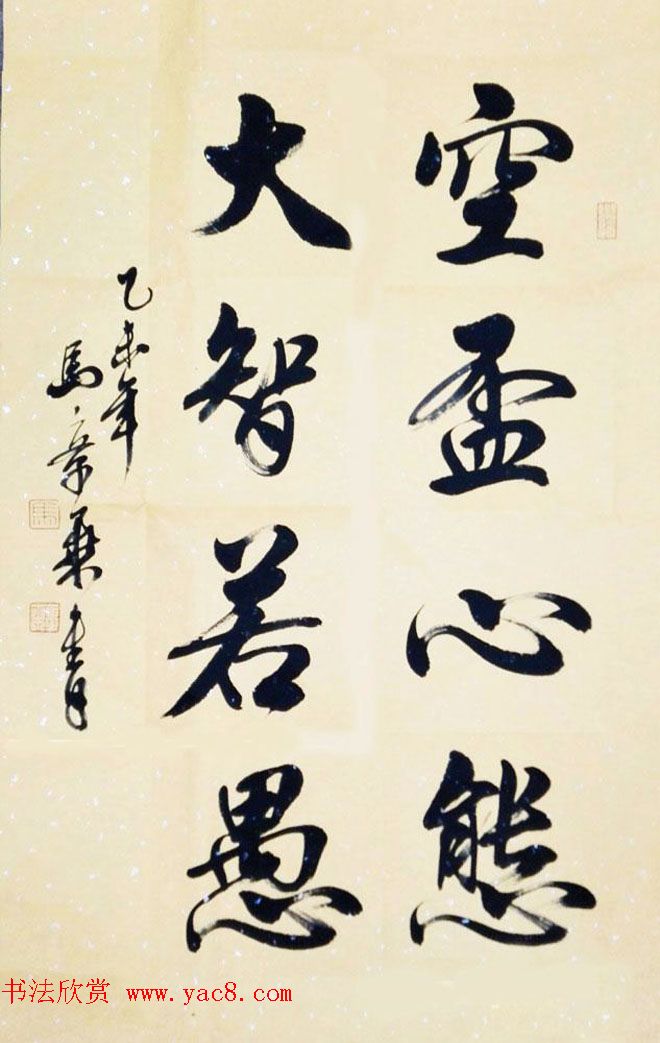 空盃心態
大智若愚
乙未年
馬景乘書
书法欣赏 www.yac8.com